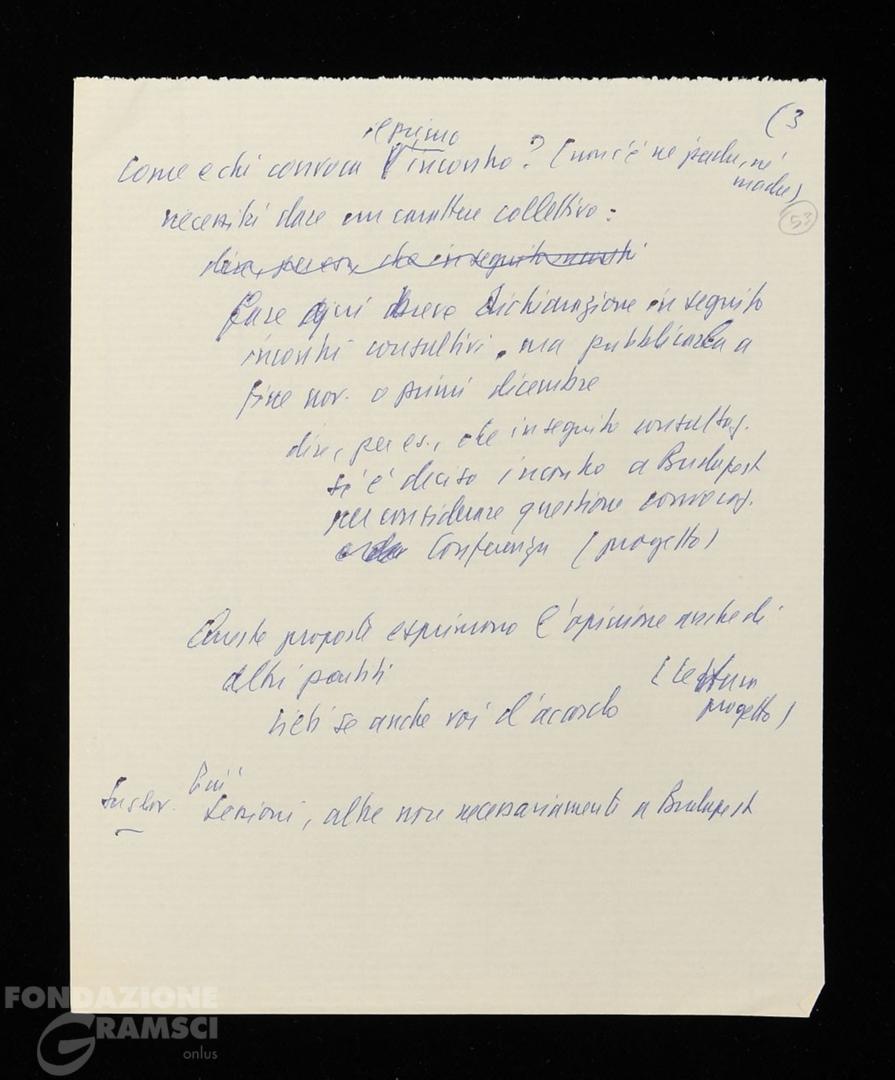 (3
il primo
Come e chi convoca l'incontro? (non c'è né padre, né
madre)
53
necessità dare un carattere collettivo:
dire, per es., che in seguito
fare ogni breve dichiarazione in seguito
incontri consultivi, ma pubblicarla a
fine nov. o primi dicembre
dire, per es., che in seguito consultaz.
si è deciso incontro a Budapest
per considerare questione convocaz.
Conferenza (progetto)
Queste proposte esprimono l'opinione anche di
altri partiti
(lettura
progetto)
lieti se anche voi d'accordo
Suslov. Più
sessioni, altre non necessariamente a Budapest
FONDAZIONE
GRAMSCI
onlus